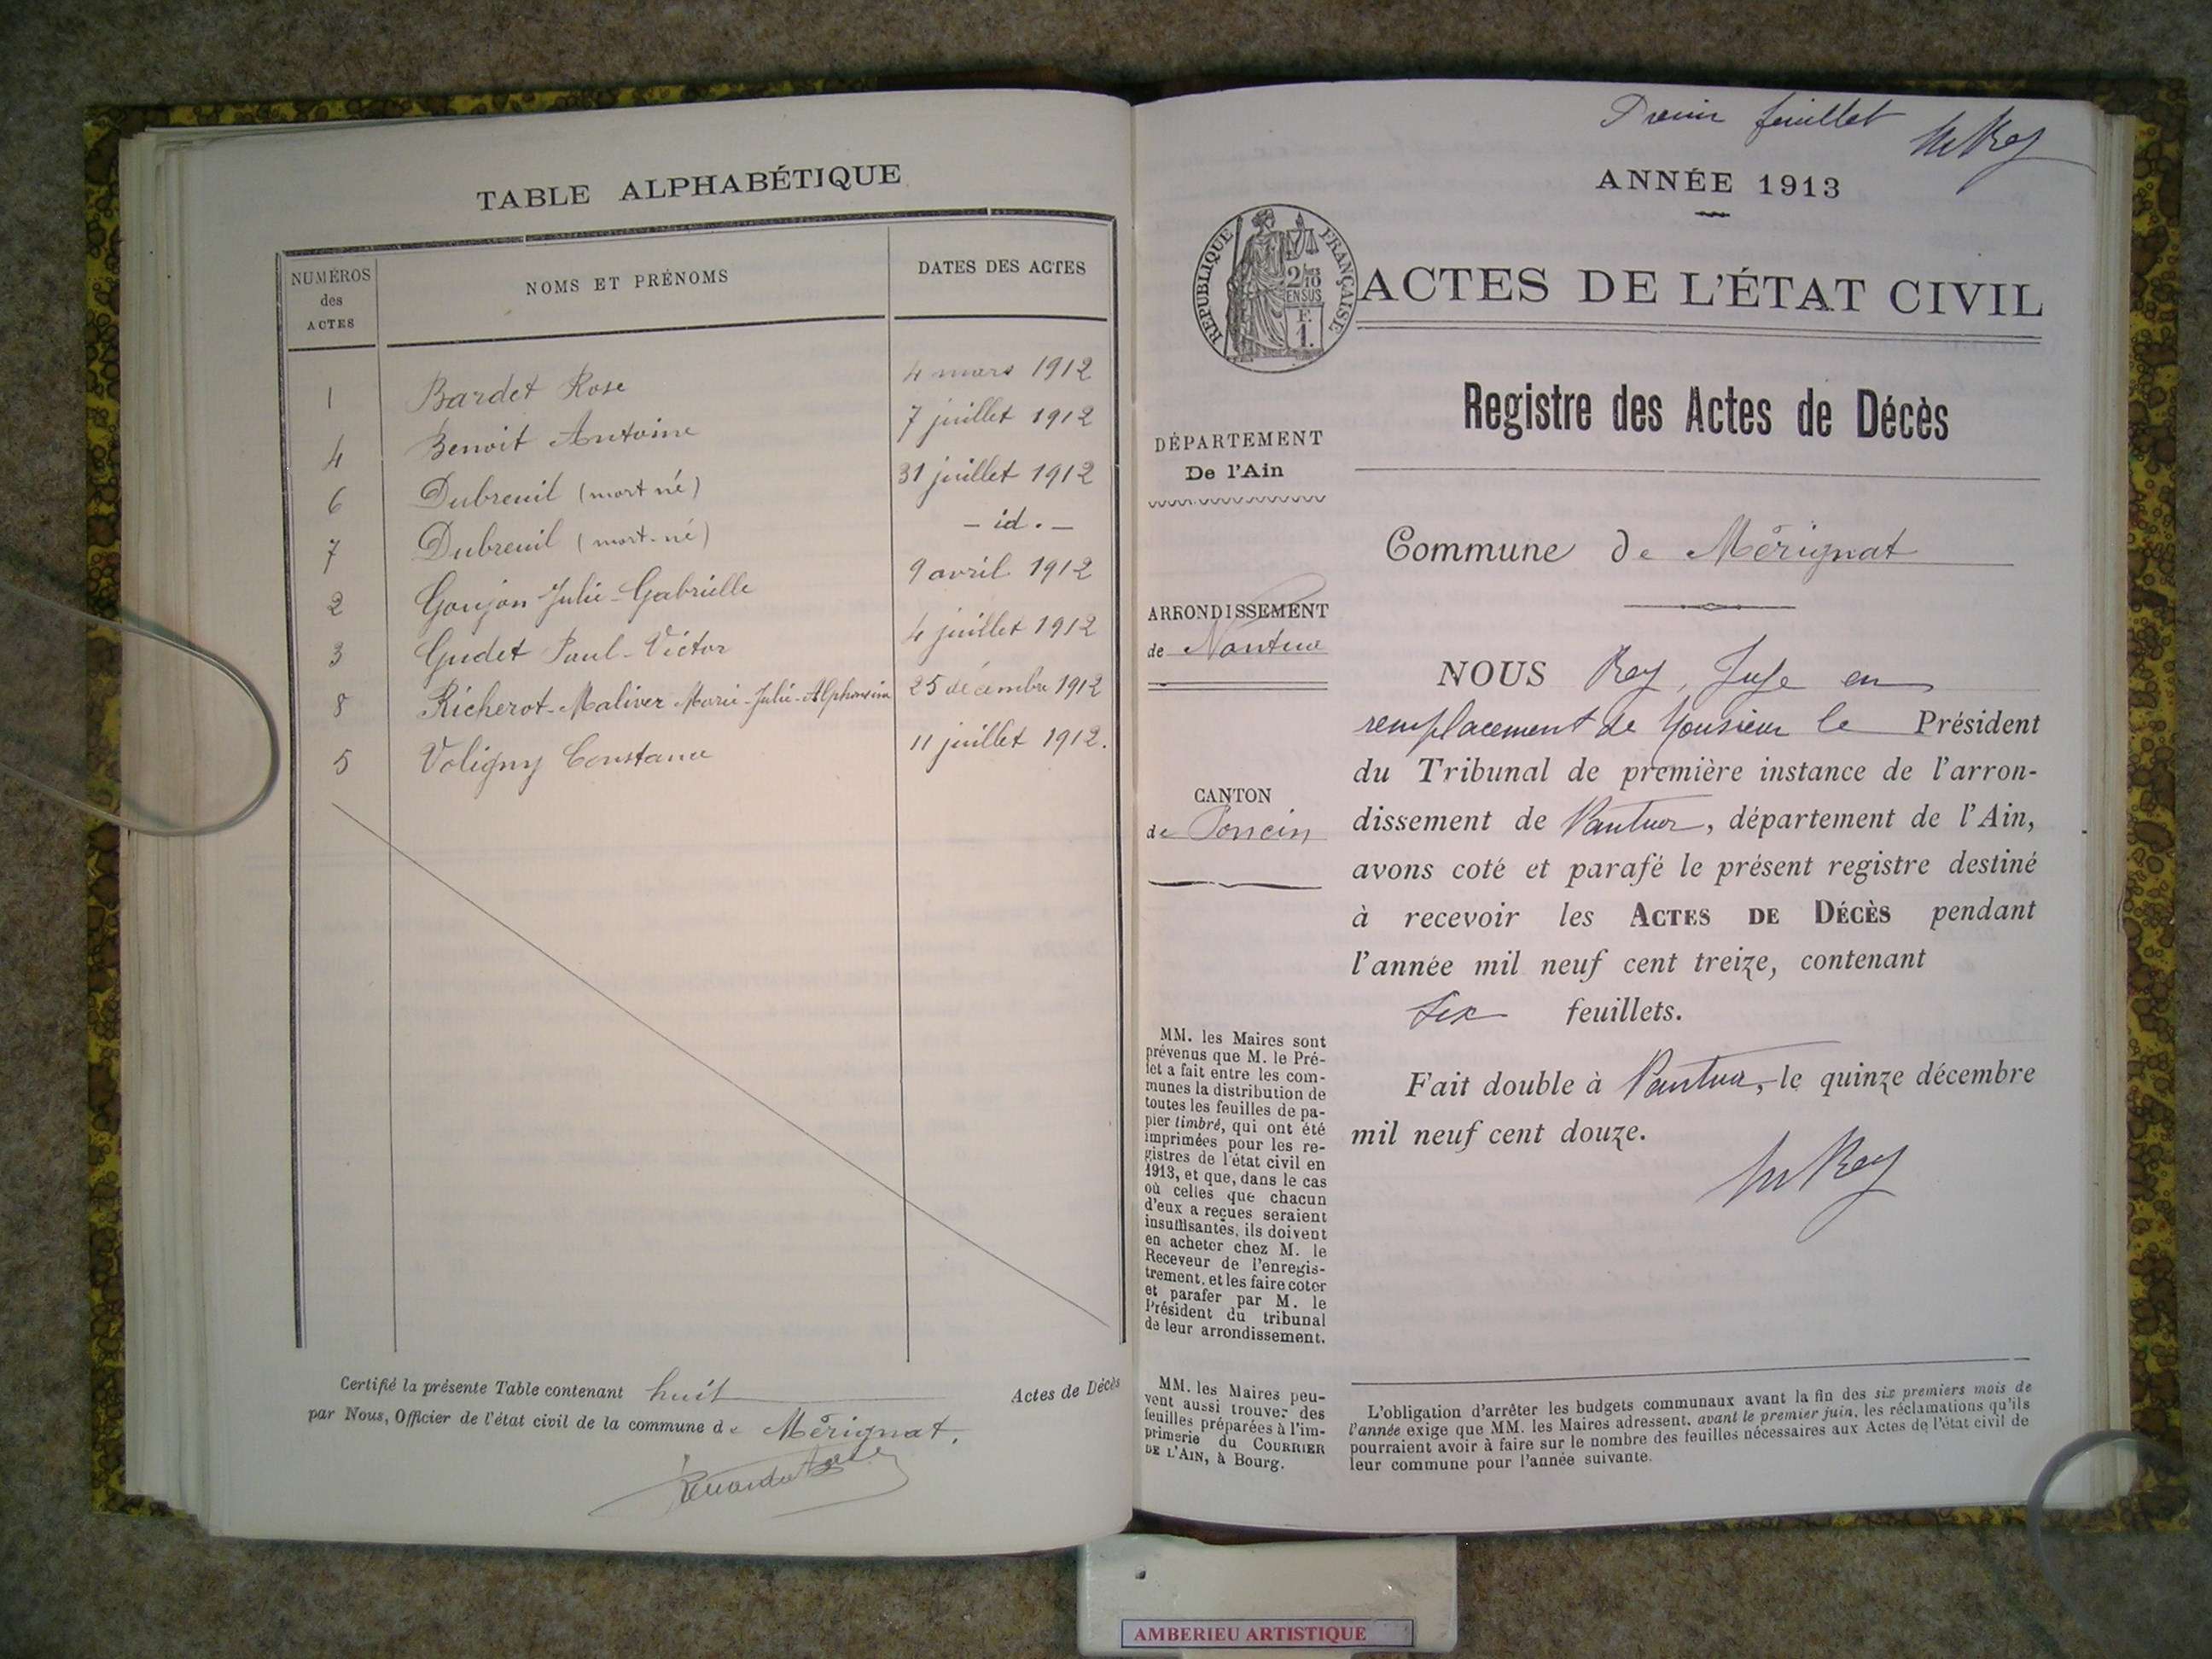 TABLE ALPHABÉTIQUE
NUMÉROS des ACTES
NOMS ET PRÉNOMS
DATES DES ACTES
1 Bardet Rose 4 mars 1912
4 Benoit Antoine 7 juillet 1912
6 Dubreuil (mort né) 31 juillet 1912
7 Dubreuil (mort-né) - id. -
2 Goujon Julie-Gabrielle 9 avril 1912
3 Gudet Paul-Victor 4 juillet 1912
8 Richerot-Maliver Marie-Julie-Alphonsine 25 décembre 1912
5 Voligny Constance 11 juillet 1912.
Certifié la présente Table contenant huit Actes de Décès
par Nous, Officier de l'état civil de la commune de Mérignat.
Premier feuillet
ANNÉE 1913
RÉPUBLIQUE FRANÇAISE
2/10 EN SUS
F. 1.
ACTES DE L'ÉTAT CIVIL
Registre des Actes de Décès
DÉPARTEMENT
De l'Ain
Commune de Mérignat
ARRONDISSEMENT
de Nantua
CANTON
de Poncin
NOUS Rey, Juge en
remplacement de Monsieur le Président
du Tribunal de première instance de l'arron-
dissement de Nantua, département de l'Ain,
avons coté et parafé le présent registre destiné
à recevoir les ACTES DE DÉCÈS pendant
l'année mil neuf cent treize, contenant
six feuillets.
Fait double à Nantua, le quinze décembre
mil neuf cent douze.
Rey
MM. les Maires sont
prévenus que M. le Pré-
fet a fait entre les com-
munes la distribution de
toutes les feuilles de pa-
pier timbré, qui ont été
imprimées pour les re-
gistres de l'état civil en
1913, et que, dans le cas
où celles que chacun
d'eux a reçues seraient
insuffisantes, ils doivent
en acheter chez M. le
Receveur de l'enregis-
trement, et les faire coter
et parafer par M. le
Président du tribunal
de leur arrondissement.
MM. les Maires peu-
vent aussi trouver des
feuilles préparées à l'im-
primerie du COURRIER
DE L'AIN, à Bourg.
L'obligation d'arrêter les budgets communaux avant la fin des six premiers mois de
l'année exige que MM. les Maires adressent, avant le premier juin, les réclamations qu'ils
pourraient avoir à faire sur le nombre des feuilles nécessaires aux Actes de l'état civil de
leur commune pour l'année suivante.
AMBERIEU ARTISTIQUE